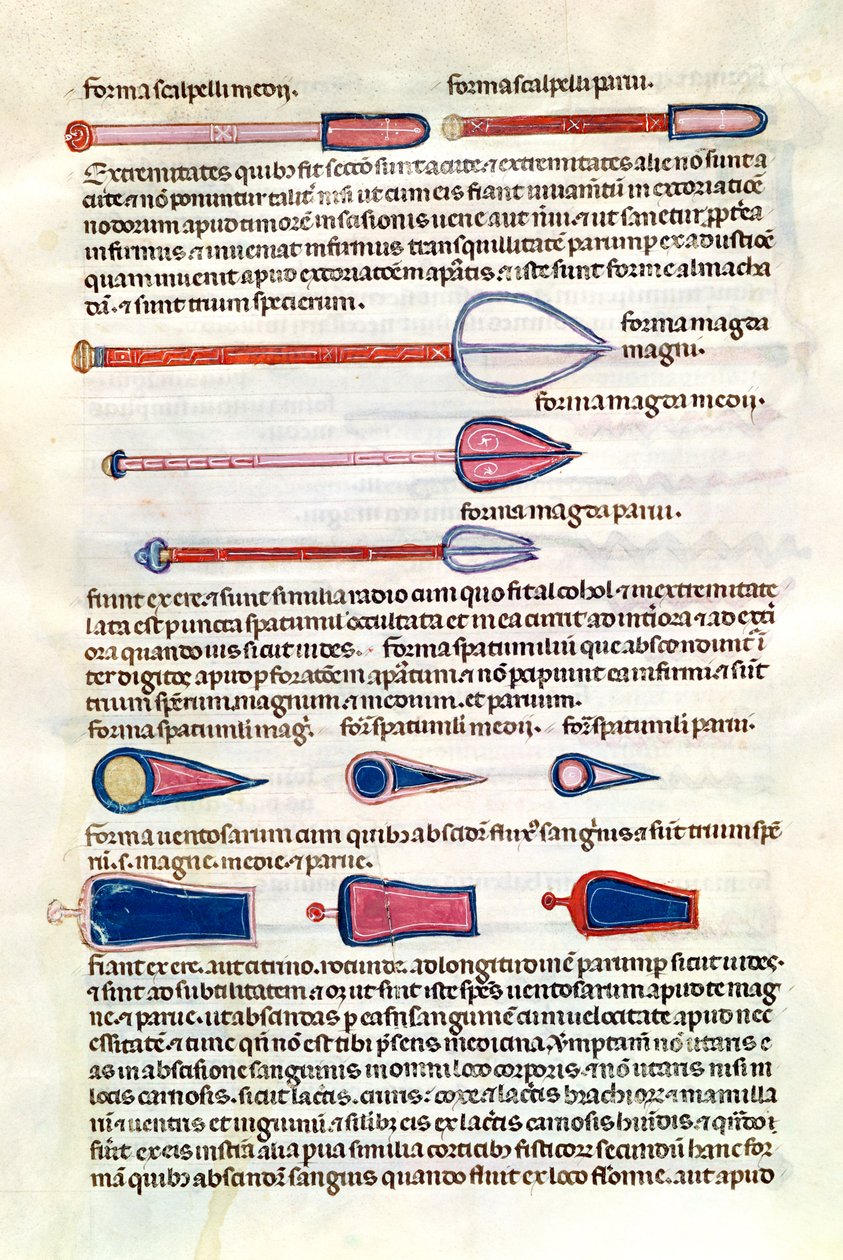 forma scalpelli medij.
forma scalpelli parui.
Extremitates quibꝫ fit sectõ sunt acute. ⁊ extremitates alie nõ sunt a
cute ⁊ nõ ponuntur talit̃ nisi ut cum eis fiant iuuam̃tũ in excoriatiõe
nodorum apud timorẽ inscisionis uene aut nẽui. ⁊ ut sanetur ꝓpt̃ea
infirmus. ⁊ inueniat infirmus transquillitatẽ parumꝑ ex adustiõe
quam inuenit apud excoriatõem aꝑatis. ⁊ iste sunt forme almacha
dã. ⁊ sunt trium specierum.
forma magda
magni.
forma magda medij.
forma magda parui.
fiunt ex ere. ⁊ sunt similia radio cum quo fit alcohol. ⁊ in extremitate
lata est puncta spatumil̃ occultata et in ea currit ad int̃iora ⁊ ad ext̃i
ora quando uis sicut uides. forma spatumilium que abscondunt̃ ĩ
ter digitos apud ꝑforatõem apatum. ⁊ nõ ꝑcipiunt ea infirmi. ⁊ sũt
trium sperum. magnum. ⁊ medium. et paruum.
forma spatumili mag̃.
for̃ spatumili medij.
for̃ spatumili parui.
forma uentosarum cum quibꝫ abscidit̃ flux᷒ sanguinis. ⁊ sũt trium spe
rũ. s. magne. medie. ⁊ parue.
fiant ex ere. aut citrino. rotunde. ad longitudinẽ parumꝑ sicut uides.
⁊ sint ad subtilitatem. ⁊ oꝫ ut sint iste spẽs uentosarum apud te mag
ne. ⁊ parue. ut abscindas ꝑ eas sanguinẽ cum uelocitate apud nec
essitatẽ. ⁊ tunc qñ nõ est tibi ꝑ̃sens medicina. nõ utaris e
as in abscisione sanguinis in omni loco corporis. ⁊ nõ utaris nisi in
locis carnosis. sicut lac̃tis. cruris: coxe. ⁊ lac̃tis brachioꝝ. ⁊ mamilla
rũ. uentris et inguinũ. ⁊ silibꝫ eis ex lac̃tis carnosis hũidis. ⁊ qñdo
fiũt ex eis instr̃a alia parua similia corticibꝫ fisticoꝝ secundũ hanc for
mã quibꝫ abscindit̃ sanguis quando fluit ex loco flõmie. aut apud